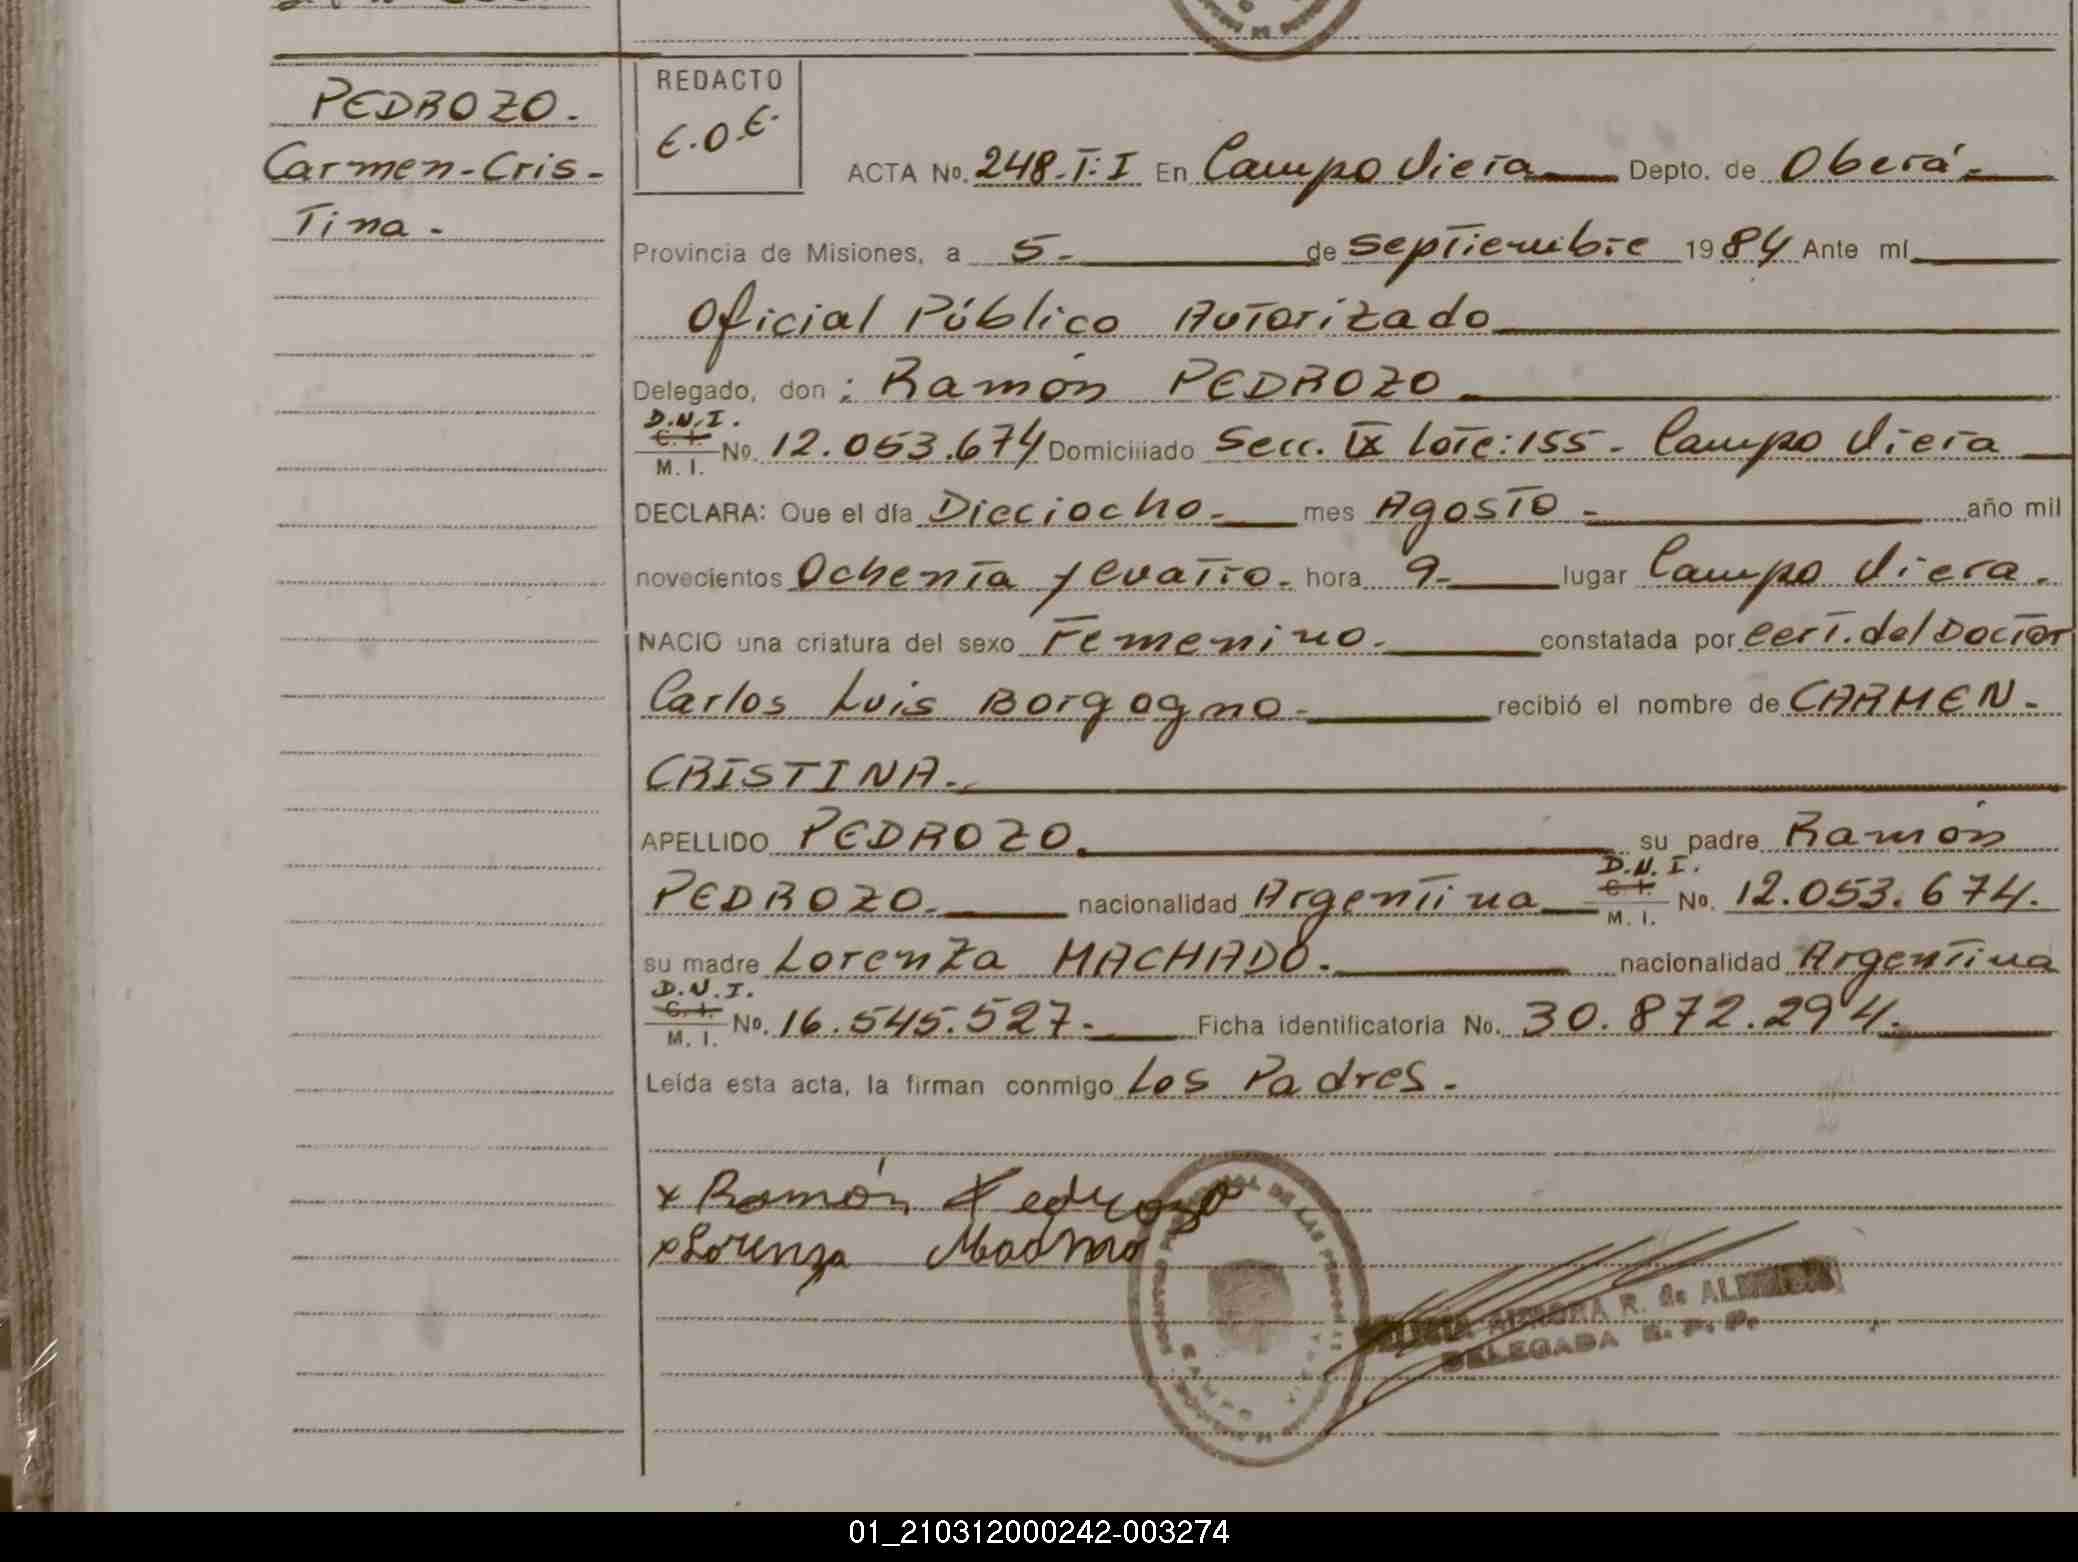 PEDROZO.
Carmen-Cris-
Tina.-
REDACTO
E.O.E.
ACTA No. 248-T:I En Campo Viera Depto. de Oberá.-
Provincia de Misiones, a 5.- de Septiembre 1984 Ante mí
Oficial Público Autorizado
Delegado, don: Ramón PEDROZO
D.N.I.
C. I. No. 12.053.674 Domiciliado Secc. IX Lote: 155. Campo Viera
M. I.
DECLARA: Que el día Dieciocho.- mes Agosto.- año mil
novecientos Ochenta y cuatro. hora 9.- lugar Campo Viera.
NACIO una criatura del sexo Femenino.- constatada por cert. del Doctor
Carlos Luis Borgogno.- recibió el nombre de CARMEN-
CRISTINA.-
APELLIDO PEDROZO. su padre Ramón
D.N.I.
PEDROZO.- nacionalidad Argentina C. I. No. 12.053.674.
M. I.
su madre Lorenza MACHADO.- nacionalidad Argentina
D.N.I.
C. I. No. 16.545.527.- Ficha identificatoria No. 30.872.294.-
M. I.
Leída esta acta, la firman conmigo Los Padres.-
x Ramón Pedrozo
x Lorenza
DE LAS PERSONAS
R. de
DELEGADA R. P. P.
CAMPO
01_210312000242-003274